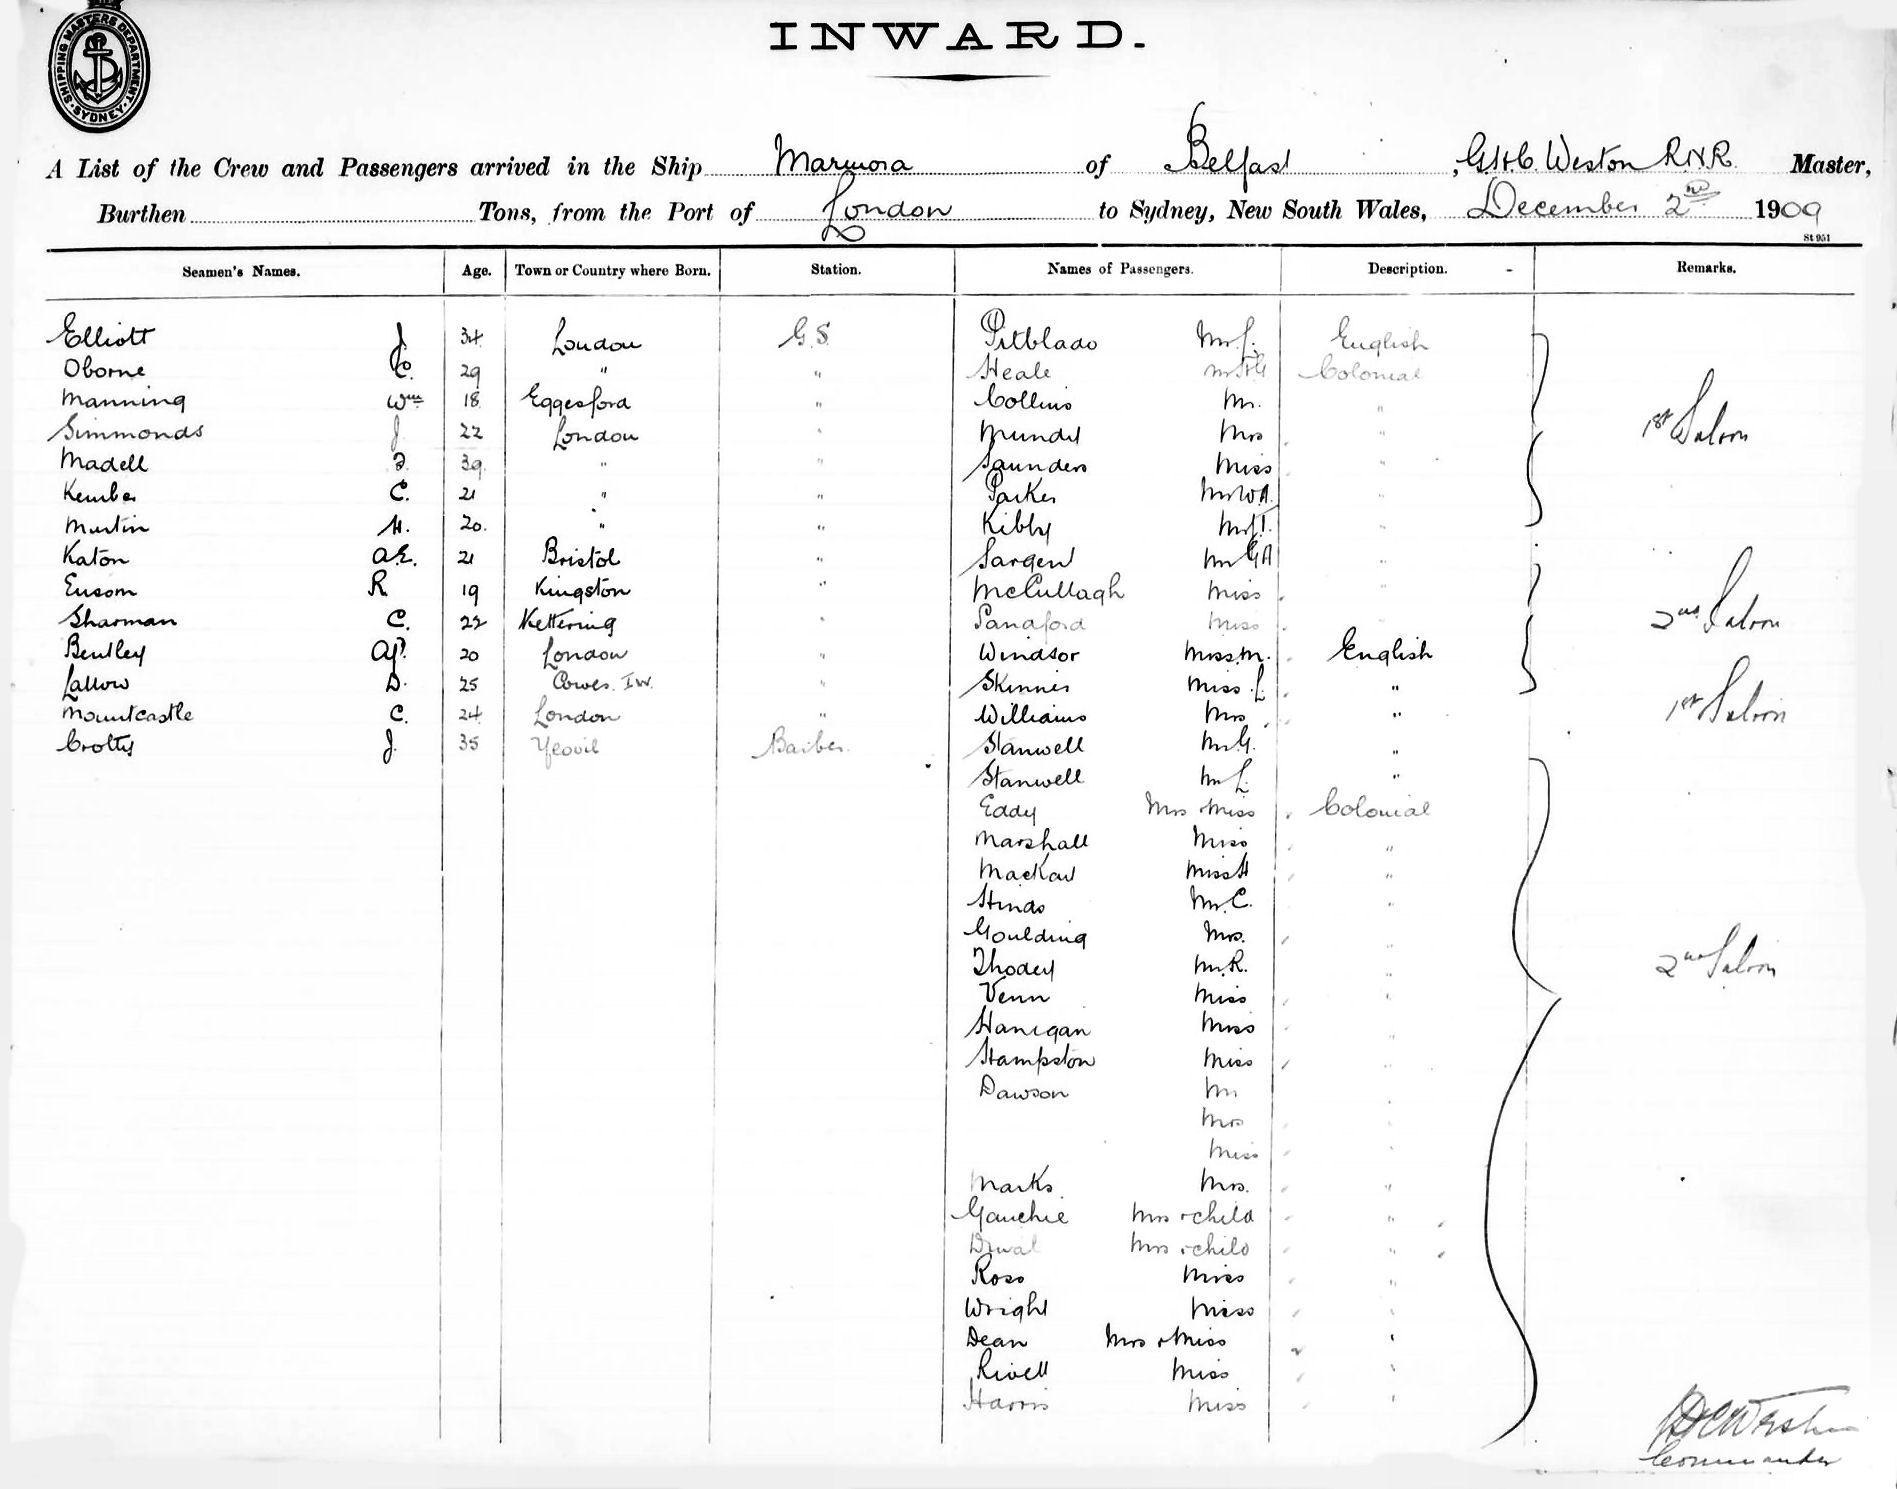 SHIPPING MASTERS DEPARTMENT · SYDNEY ·
INWARD.
A List of the Crew and Passengers arrived in the Ship Marmora of Belfast, G.H.C. Weston R.N.R. Master,
Burthen Tons, from the Port of London to Sydney, New South Wales, December 2nd 1909
St 951
Seamen's Names. Age. Town or Country where Born. Station. Names of Passengers. Description. Remarks.
Elliott J. 34 London G.S. Pitblado Mr J. English
Oborne C. 29 " " Heale Colonial
Manning Wm 18 Eggesford " Collins Mr. "
Simmonds J 22 London " Mrs " 1st Saloon
Madell 39 " " Saunders Miss "
Kember C. 21 " " Parker Mr W.A. "
Martin H. 20. " " Kibby "
Katon A.E. 21 Bristol " Sargent Mr G A "
Ensom R 19 Kingston " McCullagh Miss "
Sharman C. 22 Kettering " Miss 2nd Saloon
Bentley 20 London " Windsor Miss M. English
Lallow D. 25 Cowes. I.W. " Skinner Miss L "
Mountcastle C. 24 London " Williams Mrs " 1st Saloon
J. 35 Yeovil Barber. Stanwell Mr G. "
Stanwell Mr L. "
Eddy Mrs + Miss Colonial
Marshall Miss "
Miss H "
Hinds Mr. C. "
Goulding Mrs. "
Thodey Mr. R. " 2nd Saloon
Venn Miss "
Hanigan Miss "
Hampston Miss "
Dawson Mr "
Mrs "
Miss "
Marks Mrs. "
Gauchie Mrs + child "
Mrs + child "
Ross Miss "
Wright Miss "
Dean Mrs + Miss "
Rivell Miss "
Harris Miss "
Weston
Commander